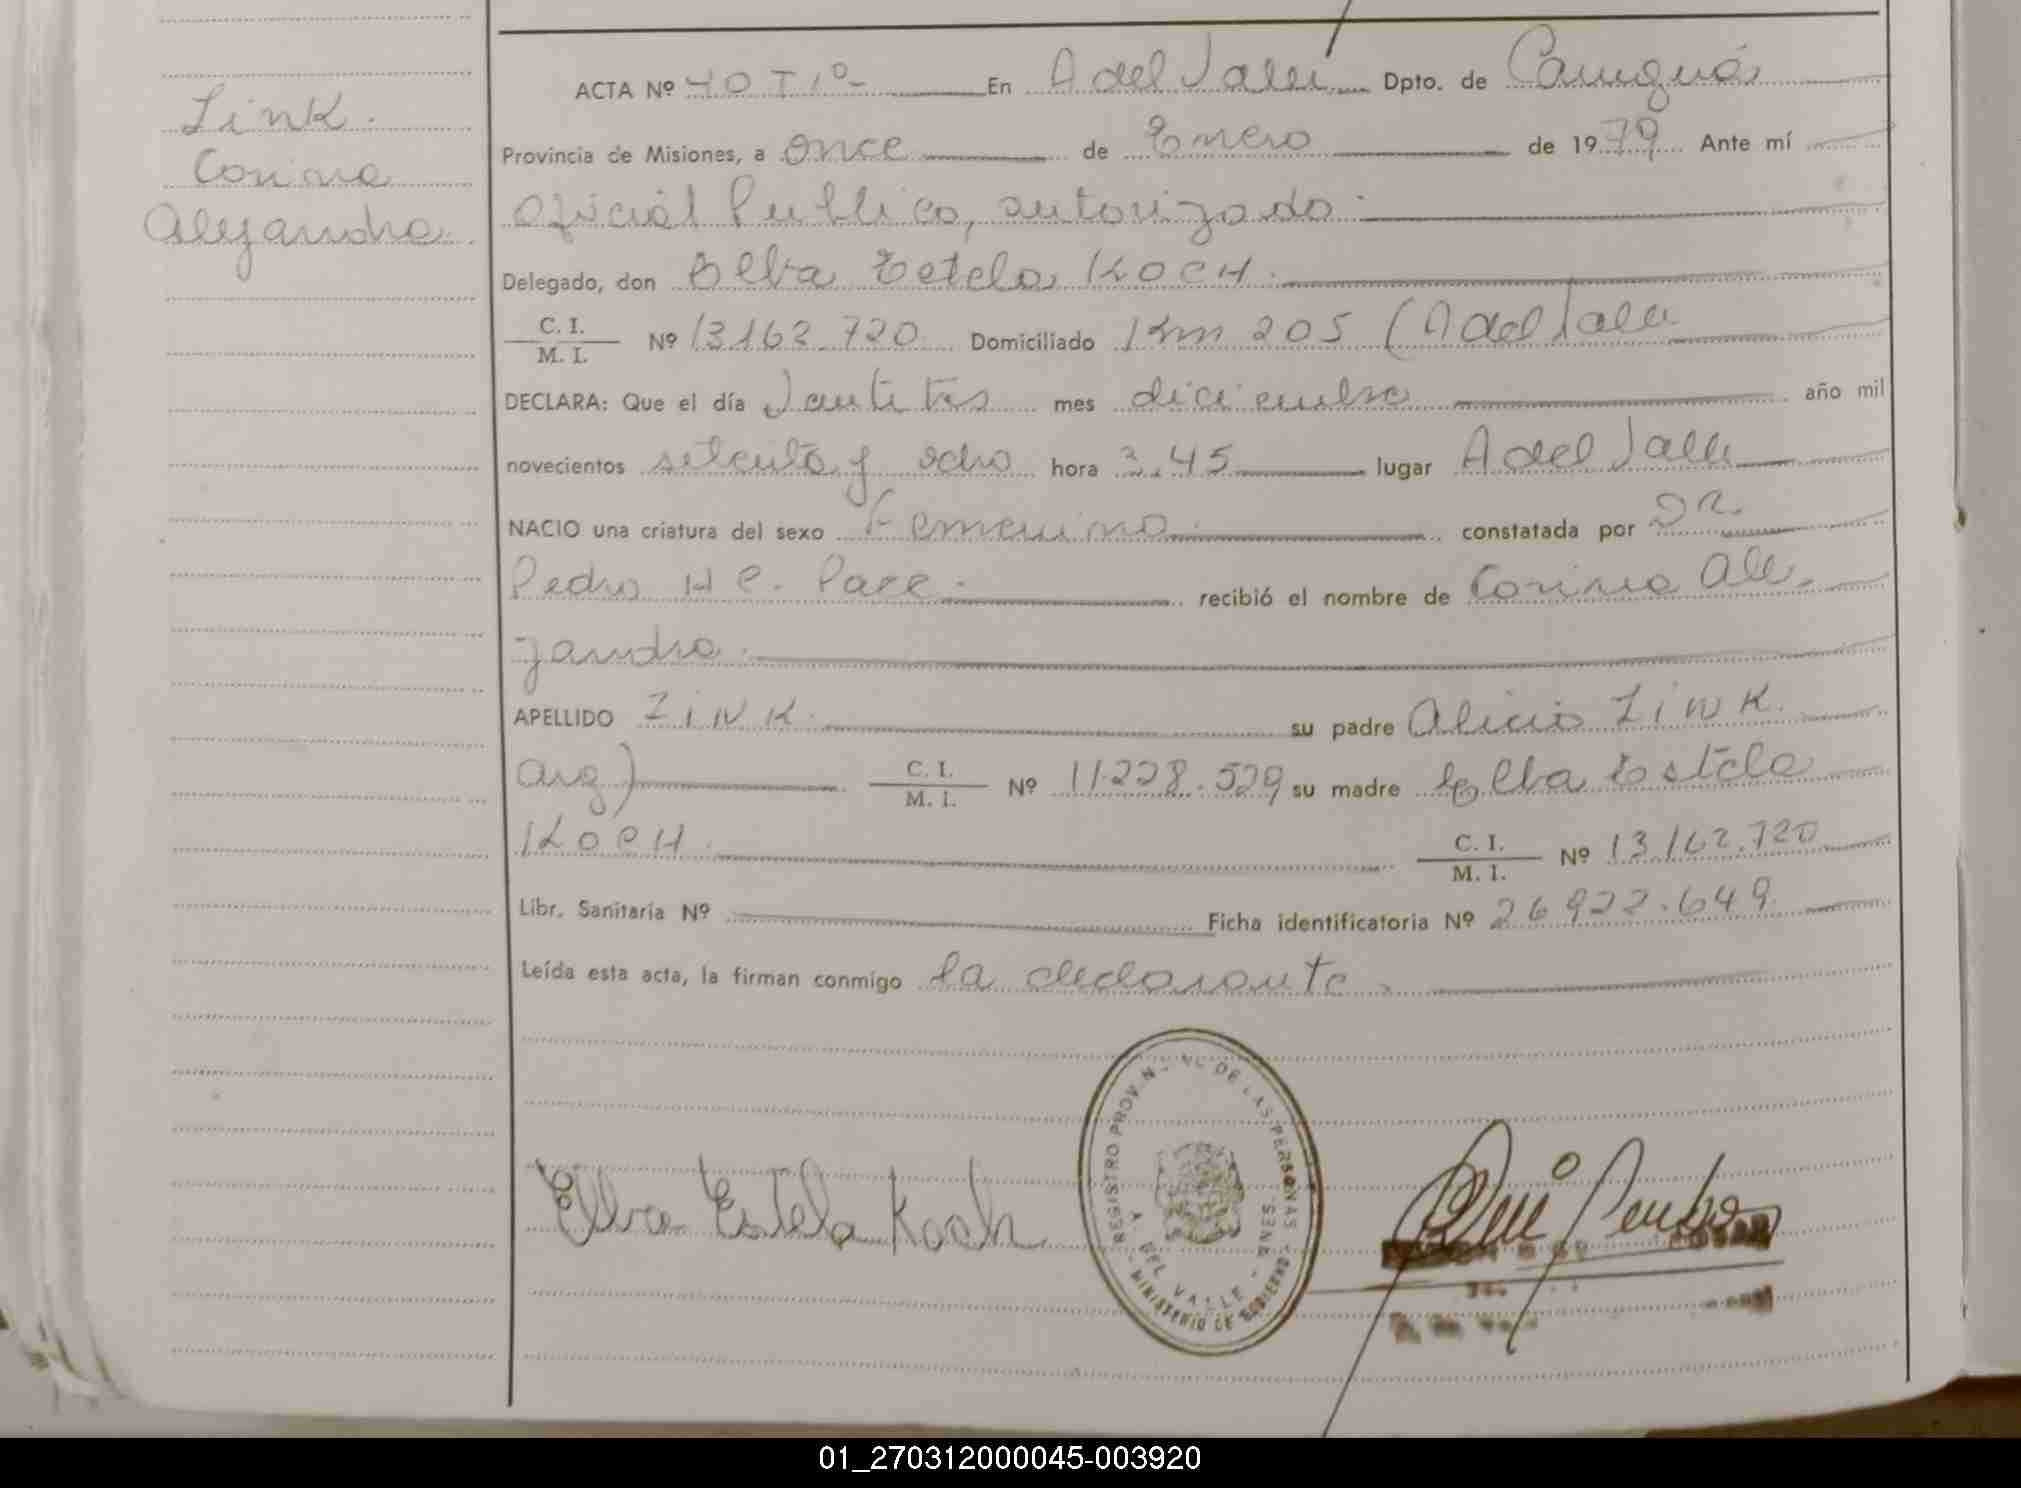 Link.
Corina
Alejandra
ACTA Nº 40 T 1º En A del Valle Dpto. de Cainguás
Provincia de Misiones, a once de Enero de 1979 Ante mí
Oficial Publico, autorizado.
Delegado, don Elba Estela KOCH.
C. I.
M. I. Nº 13.162.720 Domiciliado Km 205 (A del Valle
DECLARA: Que el día Veintitrés mes diciembre año mil
novecientos setenta y ocho hora 3.45 lugar A del Valle
NACIO una criatura del sexo Femenino constatada por Dr.
Pedro H C. Pace recibió el nombre de Corina Ale-
jandra.
APELLIDO LINK. su padre Alicio LINK.
arg) C. I.
M. I. Nº 11.228.529 su madre Elba Estela
KOCH. C. I.
M. I. Nº 13.162.720
Libr. Sanitaria Nº Ficha identificatoria Nº 26.922.649
Leída esta acta, la firman conmigo la declarante.
Elba Estela Koch
REGISTRO PROVIN DE LAS PERSONAS
A. DEL VALLE - MNES.
MINISTERIO DE GOBIERNO
01_270312000045-003920